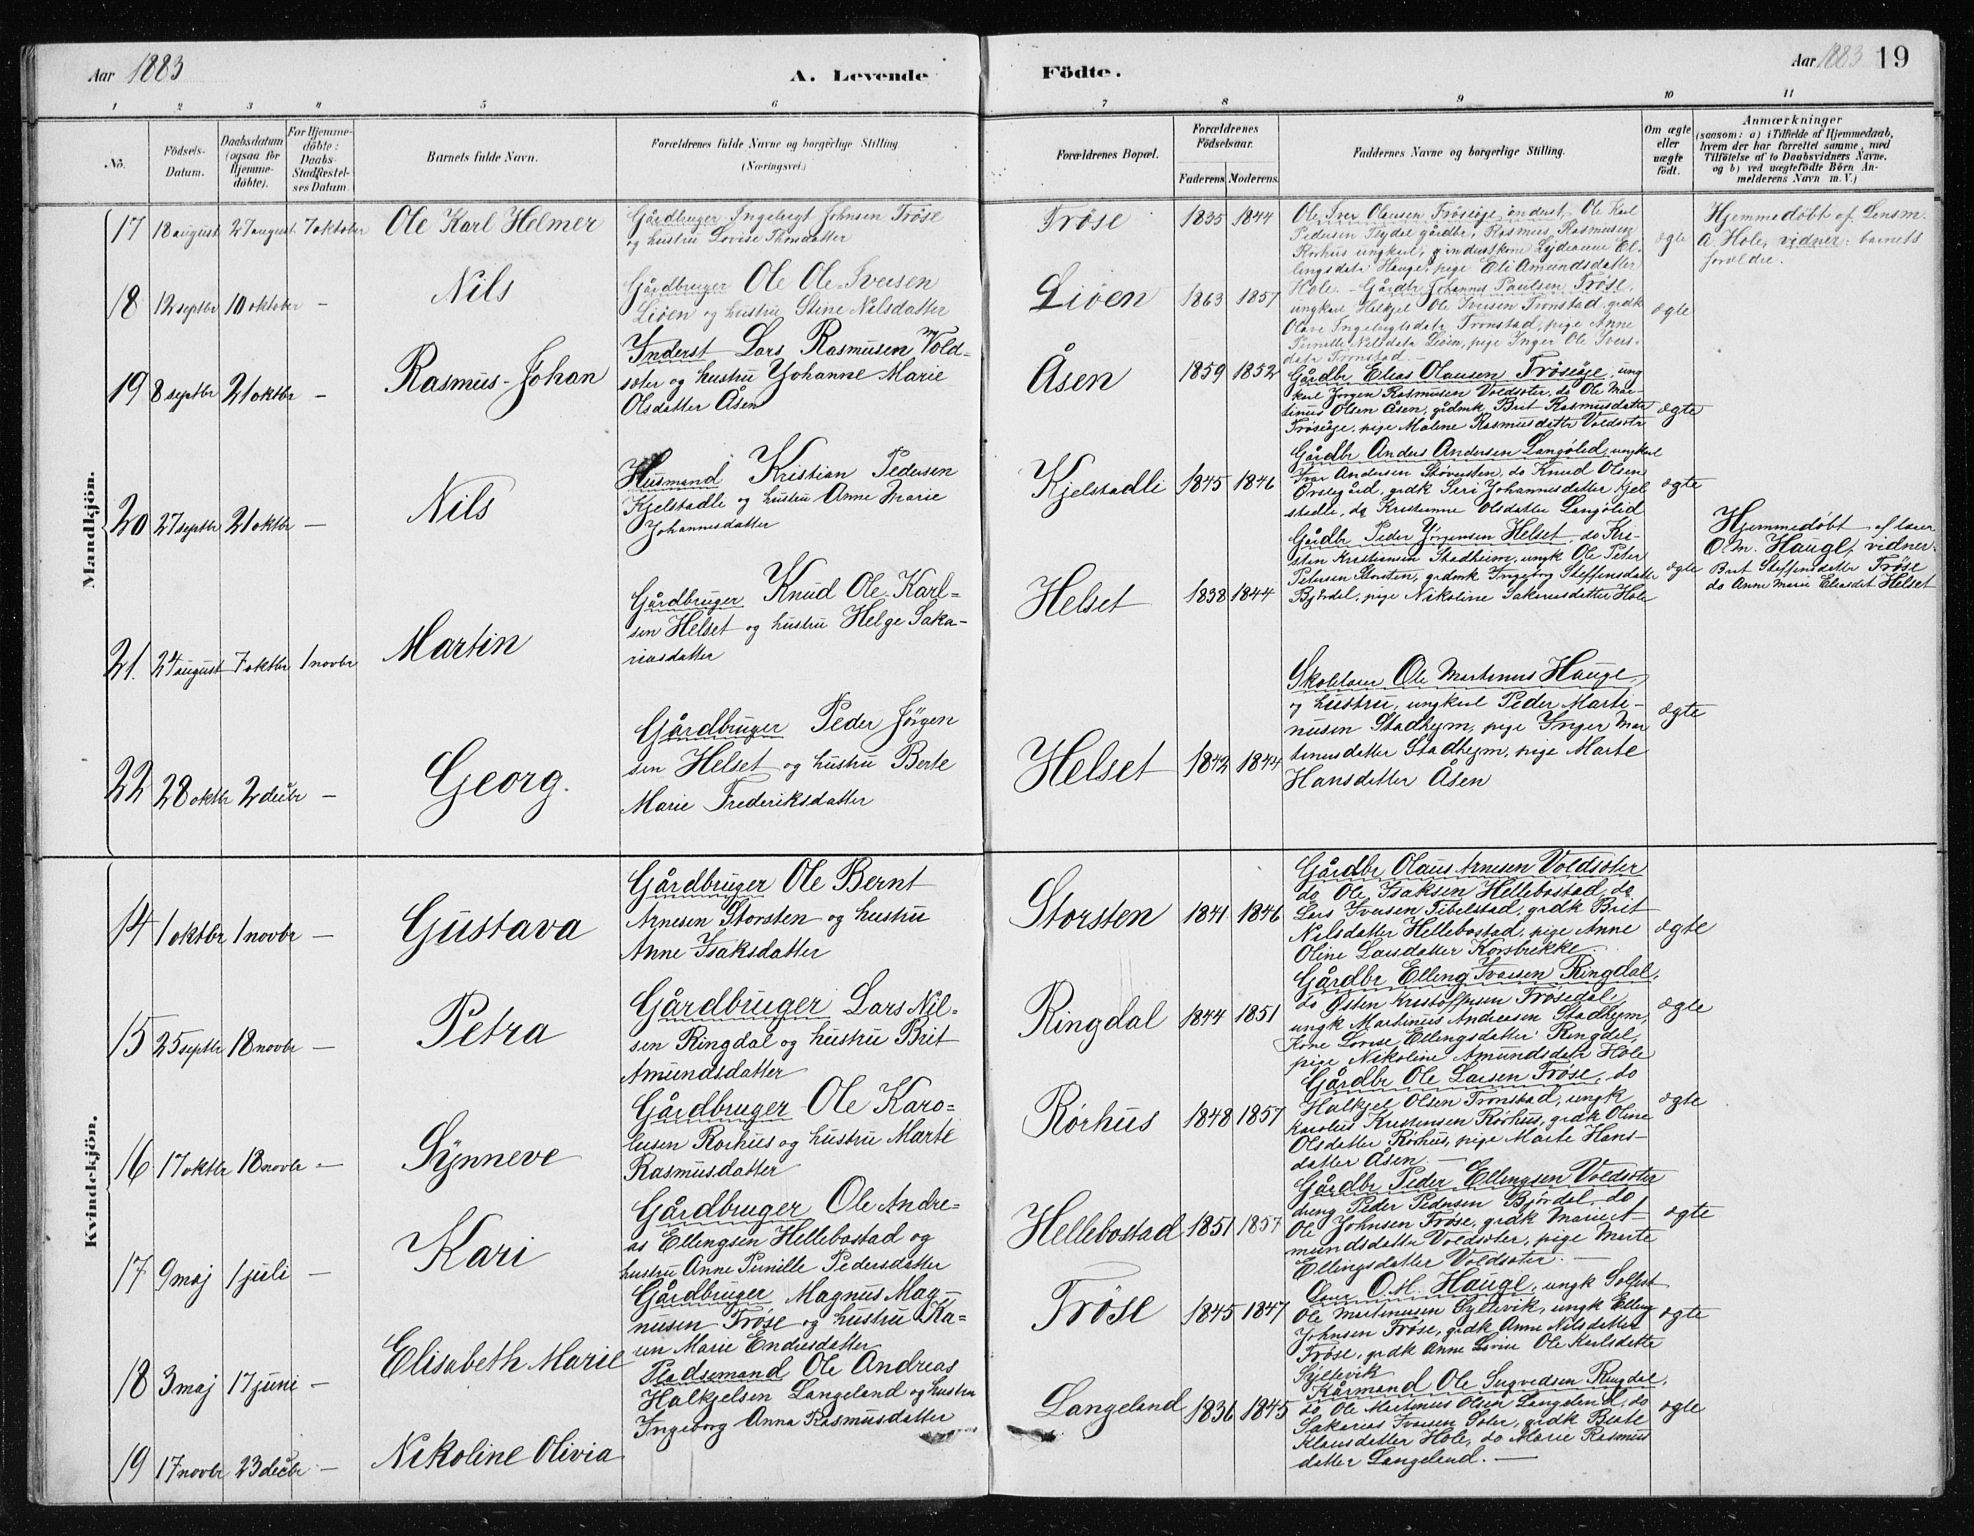 Aar 1883
A. Levende
Födte.
Aar 1883 19
1 2 3 4 5 6 7 8 9 10 11
No.
Födsels-
Datum.
Daabsdatum
(ogsaa for
Hjemme-
döbte).
For Hjemme-
döbte:
Daabs-
Stadfæstel-
ses Datum.
Barnets fulde Navn.
Forældrenes fulde Navne og borgerlige Stilling
(Næringsvei.)
Forældrenes Bopæl.
Forældrenes
Födselsaar.
Faderens Moderens.
Faddernes Navne og borgerlige Stilling.
Om ægte
eller
uægte
födt.
Anmærkninger
(saasom: a) i Tilfælde af Hjemmedaab,
hvem der har forrettet samme, med
Tilföielse af to Daabsvidners Navne,
og b) ved uægtefödte Börn An-
melderens Navn m. V.)
Mandkjön.
17 18 august 27 august 7 oktober Ole Karl Helmer
Gårdbruger Ingebrigt Johnsen Trøse
og hustru Lovise Thomdatter
Trøse 1835 1844
Ole Iver Olausen Trøsøge inderst, Ole Karl
Pedersen Fydal gårdbr, Rasmus Rasmusen
Rørhus ungkarl, inderstkone Lydeanne El-
lingsdatr Hauge, pige Eli Amundsdatter
Hole.
ægte
Hjemmedøbt af Lensm.
A. Hole, vidner: barnets
forældre.
18 12 septbr 10 oktober - Nils
Gårdbruger Ole Ole-Iversen
Liøen og hustru Stine Nilsdatter
Liøen 1863 1857
Gårdbr Johannes Paulsen Trøse,
ungkarl Halkjel Ole Iversen Tronstad, grdk
Olave Ingebrigtsdatr Tronstad, pige Anne
Pernille Nilsdatr Liøen, pige Inger Ole Ivers-
datr Tronstad. -
ægte
19 8 septbr 21 oktbr - Rasmus-Johan
Inderst Lars Rasmusen Vold-
sæter og hustru Johanne Marie
Olsdatter Åsen
Åsen 1859 1852
Gårdbr Elias Olausen Trøsøge, ung
karl Jørgen Rasmusen Voldsæter, do Ole Mar-
tinus Olsen Åsen, gårdmk Brit Rasmusdatter
Trøsøge, pige Malene Rasmusdattr Voldsætr
ægte
20 27 septbr 21 oktbr - Nils
Husmand Kristian Pedersen
Kjelstadli og hustru Anne Marie
Johannesdatter
Kjelstadli 1845 1846
Gårdbr Anders Andersen Langølid, ungkarl
Ivar Andersen Støversten, do Knud Olsen
Øvsegård, grdk Siri Johannesdatter Kjel
stadli, do Kristianne Olsdatter Langølid
ægte
21. 24 august 7 oktbr 1 novbr Martin
Gårdbruger Knud Ole Karl-
sen Helset og hustru Helge Saka-
riasdatter
Helset 1838 1844
Gårdbr Peder Jørgensen Helset, do Kri-
sten Kristiansen Stadheim, ungk Ole Peter
Petersen Storsten, grdmk Ingeborg Steffensdatter
Bjørdal, pige Nikoline Sakariasdatter Hole
ægte
Hjemmedøbt af lærer
O. M. Hauge, vidner:
Brit Steffensdatter Trøse
do Anne Marie Eliasdat Helset
22 28 oktbr 2 decbr - Georg.
Gårdbruger Peder Jørgen
sen Helset og hustru Berte
Marie Frederiksdatter
Helset 1842 1844
Skolelærer Ole Martinus Hauge,
og hustru, ungkarl Peder Marti-
nusen Stadhejm, pige Inger Mar
tinusdatter Stadhejm, pige Marte
Hansdatter Åsen
ægte
Kvindekjön.
14 1 oktbr 1 novbr - Gustava
Gårdbruger Ole Bernt
Arnesen Storsten og hustru
Anne Isaksdatter
Storsten 1841 1846
Gårdbr Olaus Arnesen Voldsæter
do Ole Isaksen Hellebostad, do
Lars Iversen Tibelstad, grdk Brit
Nilsdatter Hellebostad, pige Anne
Oline Larsdatter Korsbrekke
ægte
15 25 septbr 18 novbr - Petra
Gårdbruger Lars Nil-
sen Ringdal og hustru Brit
Amundsdatter
Ringdal 1844 1851
Gårdbr Elling Ivarsen Ringdal,
do Østen Kristoffersen Trøsedal,
ungk Martinus Andreasen Stadhejm,
Kone Lovise Ellingsdatter Ringdal,
pige Nikoline Amundsdatr Hole
ægte
16 17 oktbr 18 novbr - Synneve
Gårdbruger Ole Karo-
lusen Rørhus og hustru Marte
Rasmusdatter
Rørhus 1848 1857
Gårdbr Ole Larsen Trøse, do
Halkjel Olsen Tronstad, ungk
Karolus Kristensen Rørhus, grdk Oline
Olsdatter Rørhus, pige Marte Hans-
datter Åsen. -
ægte
17 9 maj 1 juli - Kari
Gårdbruger Ole Andre-
as Ellingsen Hellebostad og
hustru Anne Pernille Pedersdatter
Hellebostad 1851 1857
Gårdbr Peder Ellingsen Voldsæter
dreng Peder Pedersen Bjørdal, do
Ole Johnsen Trøse, grdk Marie A-
mundsdatter Voldsæter, pige Marte
Ellingsdatter Voldsæter. -
ægte
18 3 maj 17 juni - Elisabeth Marie
Gårdbruger Magnus Mag-
nusen Trøse og hustru Ka-
ren Marie Endresdatter
Trøse 1845 1847
Lærer O. M. Hauge, ungk Solfest
Ole Martinusen Sylevik, ungk Elling
Johnsen Trøse, grdk Anne Nilsdatter
Trøse, grdk Anne Lovise Ole Karlsdatter
Syltevik
ægte
19 17 novbr 23 decbr - Nikoline Olivia
Pladsemand Ole Andreas
Halkjelsen Langeland og hustru
Ingeborg Anna Rasmusdatter
Langeland 1836 1845
Kårmand Ole Sugvedsen Ringdal,
do Ole Martinus Olsen Langeland, do
Sakarias Ivarsen Sæter, grdk Beate
Klausdatter Hole, do Marie Rasmus
datter Langeland. -
ægte